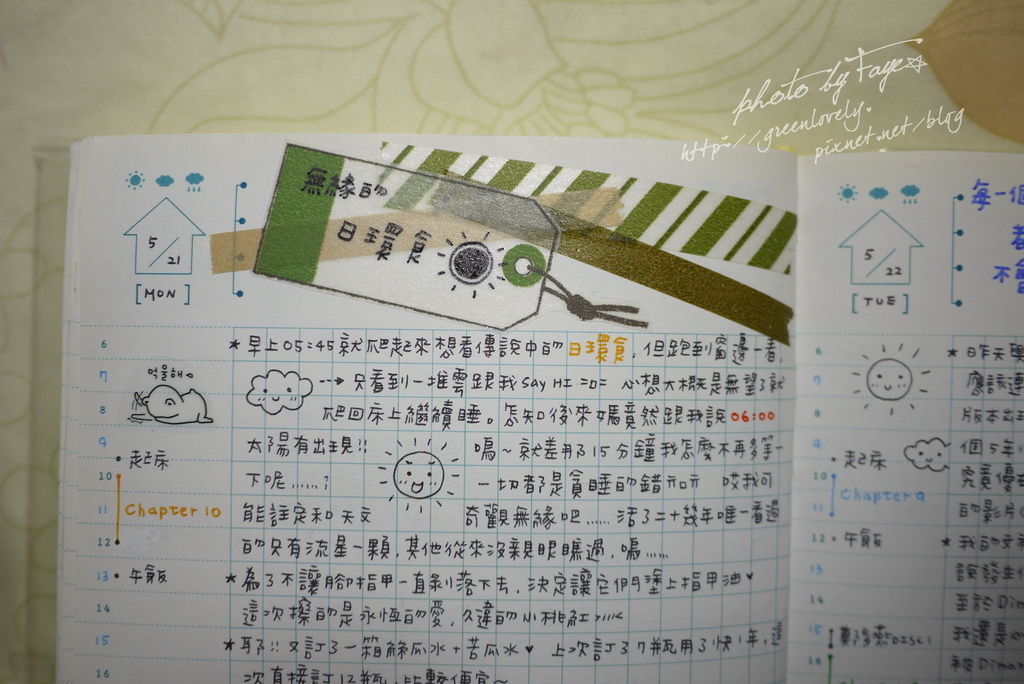 photo by Faye☆
http://greenlovely.
pixnet.net/blog
無緣的
日環食
5/21
[MON]
6
★早上05:45就爬起來想看傳說中的日環食,但跑到窗邊一看
7
억울해。
→只看到一堆雲跟我say HI =o= 心想大概是無望了就
8
爬回床上繼續睡。怎知後來媽竟然跟我說06:00
9
太陽有出現!! 嗚~就差那15分鐘我怎麼不再多等一
起床
10
下呢……? 一切都是貪睡的錯 哎我可
Chapter 10
11
能註定和天文 奇觀無緣吧……活了二十幾年唯一看過
12
的只有流星一顆,其他從來沒親眼瞧過,嗚……
13
午飯
★為了不讓腳指甲一直剝落下去,決定讓它們塗上指甲油♥
14
這次擦的是永恆的愛,久違的小桃紅
15
★耶!!又訂了一箱絲瓜水+苦瓜水♥ 上次訂了7瓶用了快1年,
16
次直接訂12瓶,比較便宜~
5/22
[TUE]
每一個
不會
6
★昨天
7
應該
8
版本出
9
個5年
起床
10
究竟優
Chapter 9
11
的影片
12
午飯
★我的
13
說發生
14
至於Di
15
DISC1
我還是
16
被Diman